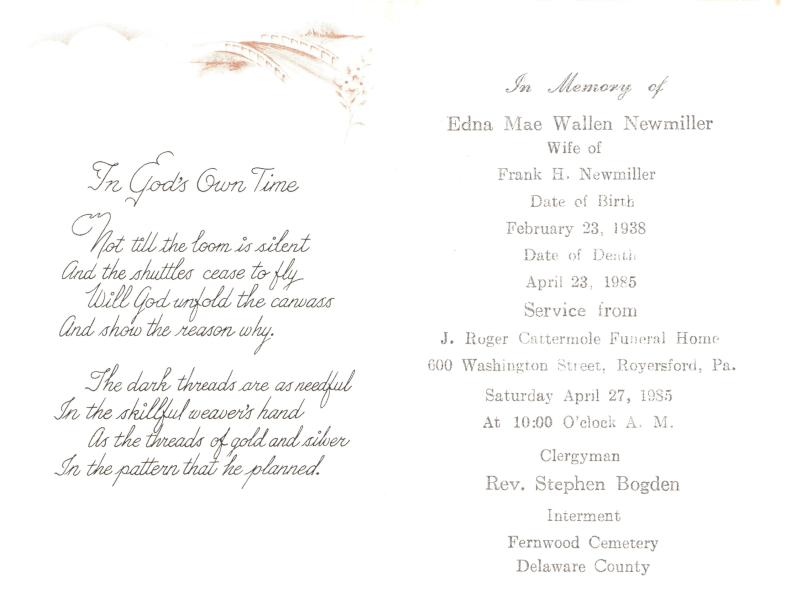 In God's Own Time
Not till the loom is silent
And the shuttles cease to fly
Will God unfold the canvass
And show the reason why.
The dark threads are as needful
In the skillful weaver's hand
As the threads of gold and silver
In the pattern that he planned.
In Memory of
Edna Mae Wallen Newmiller
Wife of
Frank H. Newmiller
Date of Birth
February 23, 1938
Date of Death
April 23, 1985
Service from
J. Roger Cattermole Funeral Home
600 Washington Street, Royersford, Pa.
Saturday April 27, 1985
At 10:00 O'clock A. M.
Clergyman
Rev. Stephen Bogden
Interment
Fernwood Cemetery
Delaware County